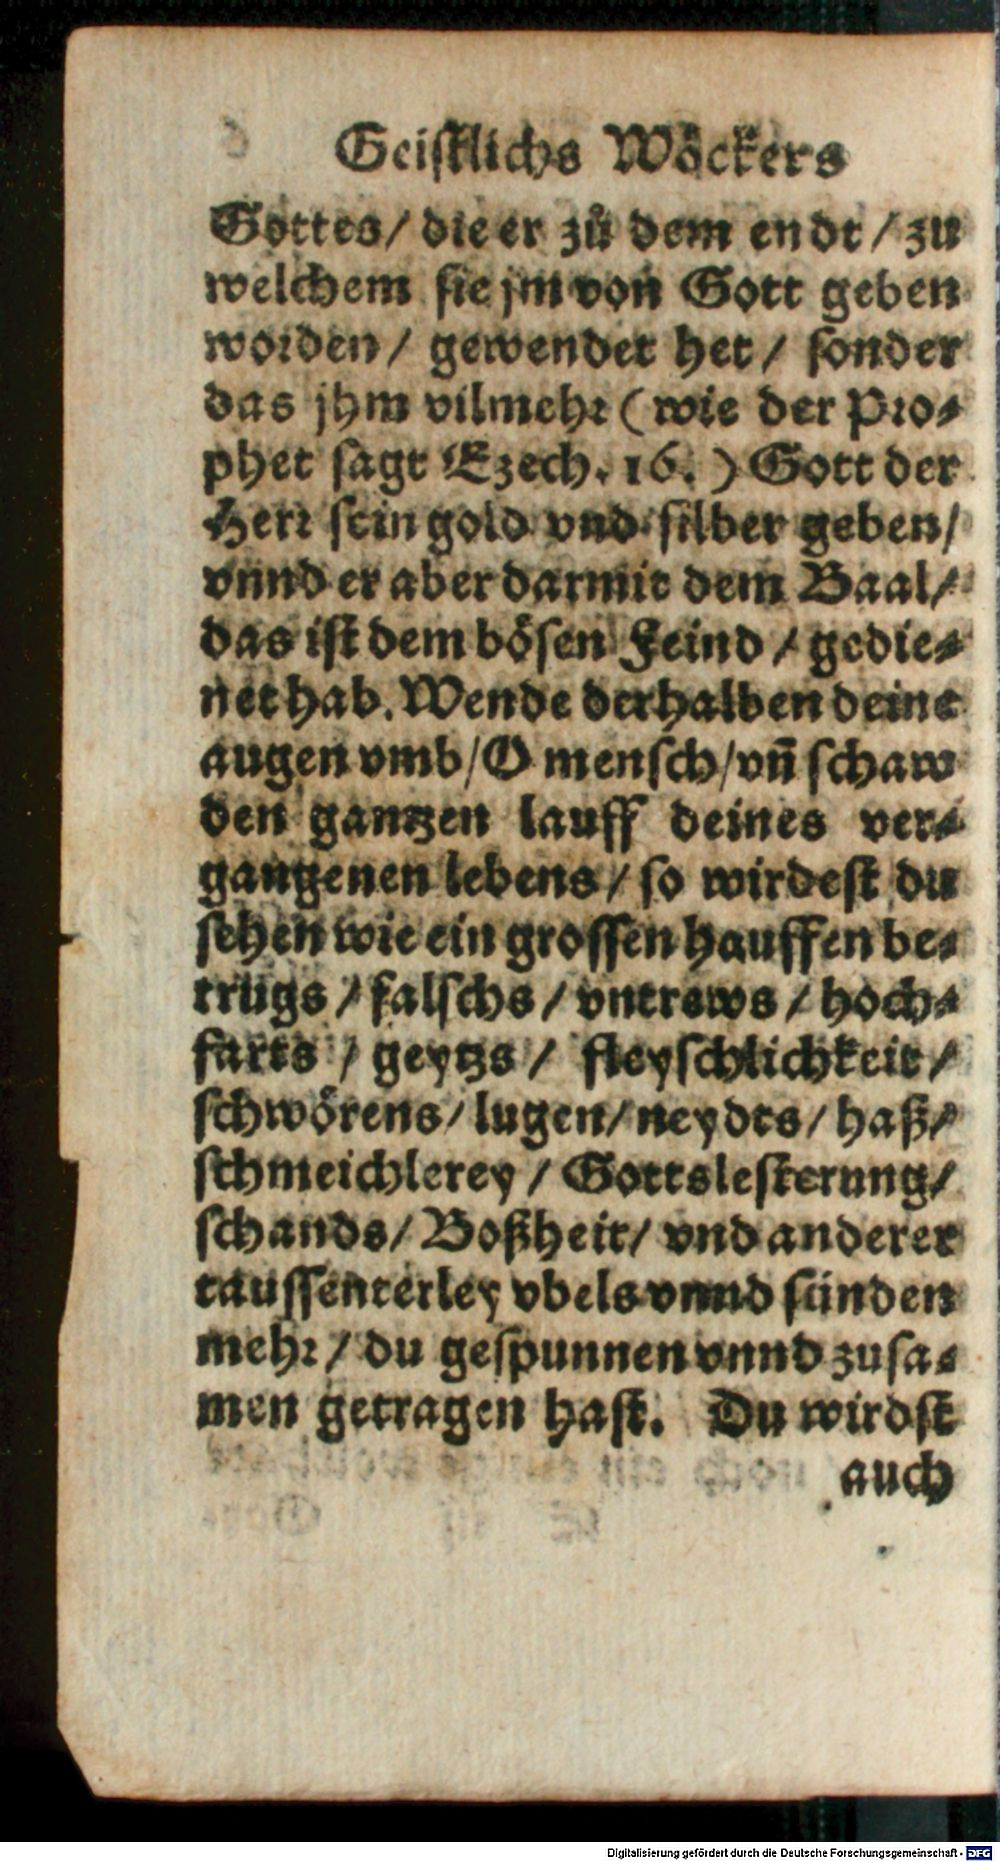 Geistlichs Wöckers
Gottes/ die er zů dem endt/ zu
welchem sie jm von Gott geben
worden/ gewendet het/ sonder
das jhm vilmehr (wie der Pro-
phet sagt Ezech. 16.) Gott der
Herr sein gold vnd silber geben/
vnnd er aber darmit dem Baal/
das ist dem bösen Feind/ gedie-
net hab. Wende derhalben deine
augen vmb/ O mensch/ vñ schaw
den gantzen lauff deines ver-
gangenen lebens/ so wirdest du
sehen wie ein grossen hauffen be-
trugs/ falschs/ vntrews/ hoch-
farts/ geytzs/ fleyschlichkeit/
schwörens/ lugen/ neydts/ haß/
schmeichlerey/ Gottslesterung/
schands/ Boßheit/ vnd anderer
taussenterley vbels vnnd sünden
mehr/ du gespunnen vnnd zusa-
men getragen hast. Du wirdst
auch
Digitalisierung gefördert durch die Deutsche Forschungsgemeinschaft - DFG